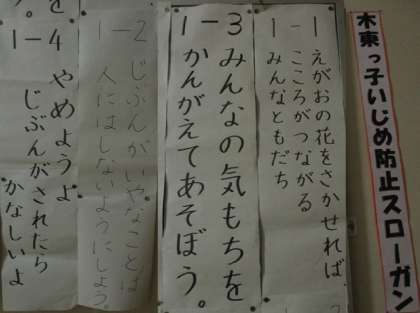 木東っ子いじめ防止スローガン
1-1
えがおの花をさかせれば
こころがつながる
みんなともだち
1-3
みんなの気もちを
かんがえてあそぼう。
1-2
じぶんがいやなことは
人にはしないようにしよう
1-4
やめようよ
じぶんがされたら
かなしいよ